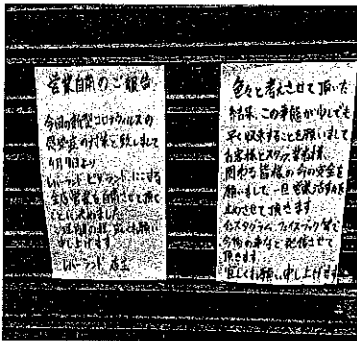 営業自粛のご報告
今回の新型コロナウィルスの
感染症の対策と致しまして
4月7日より
店舗営業を自粛させて頂く
ことに決めました
ご理解の程宜しくお願い
申し上げます
店主
色々と考えさせて頂いた
結果、この事態が少しでも
早く収束することを願いまして
お客様とスタッフ、業者様、
関わる皆様の今の安全を
願いまして、一旦営業活動を
止めさせて頂きます
インスタグラム、フェイスブック等で
今後の事など発信させて
頂きます
宜しくお願い申し上げます